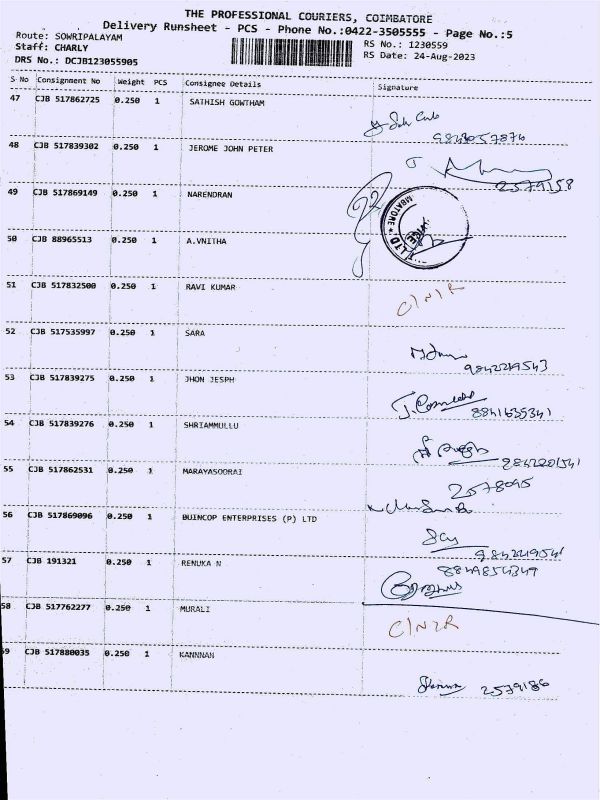 THE PROFESSIONAL COURIERS, COIMBATORE
Delivery Runsheet - PCS - Phone No.:0422-3505555 - Page No.:5
Route: SOWRIPALAYAM
Staff: CHARLY
DRS No.: DCJB123055905
RS No.: 1230559
RS Date: 24-Aug-2023
S No Consignment No Weight PCS Consignee Details Signature
47 CJB 517862725 0.250 1 SATHISH GOWTHAM
9843057874
48 CJB 517839302 0.250 1 JEROME JOHN PETER
2579158
49 CJB 517869149 0.250 1 NARENDRAN
50 CJB 88965513 0.250 1 A.VNITHA
51 CJB 517832500 0.250 1 RAVI KUMAR
C/N/R
52 CJB 517535997 0.250 1 SARA
9842249543
53 CJB 517839275 0.250 1 JHON JESPH
8841635341
54 CJB 517839276 0.250 1 SHRIAMMULLU
9842201541
55 CJB 517862531 0.250 1 MARAYASOORAI
2578095
56 CJB 517869096 0.250 1 BUINCOP ENTERPRISES (P) LTD
984249541
57 CJB 191321 0.250 1 RENUKA N
8849854349
58 CJB 517762277 0.250 1 MURALI
C/N2R
59 CJB 517880035 0.250 1 KANNNAN
2579186